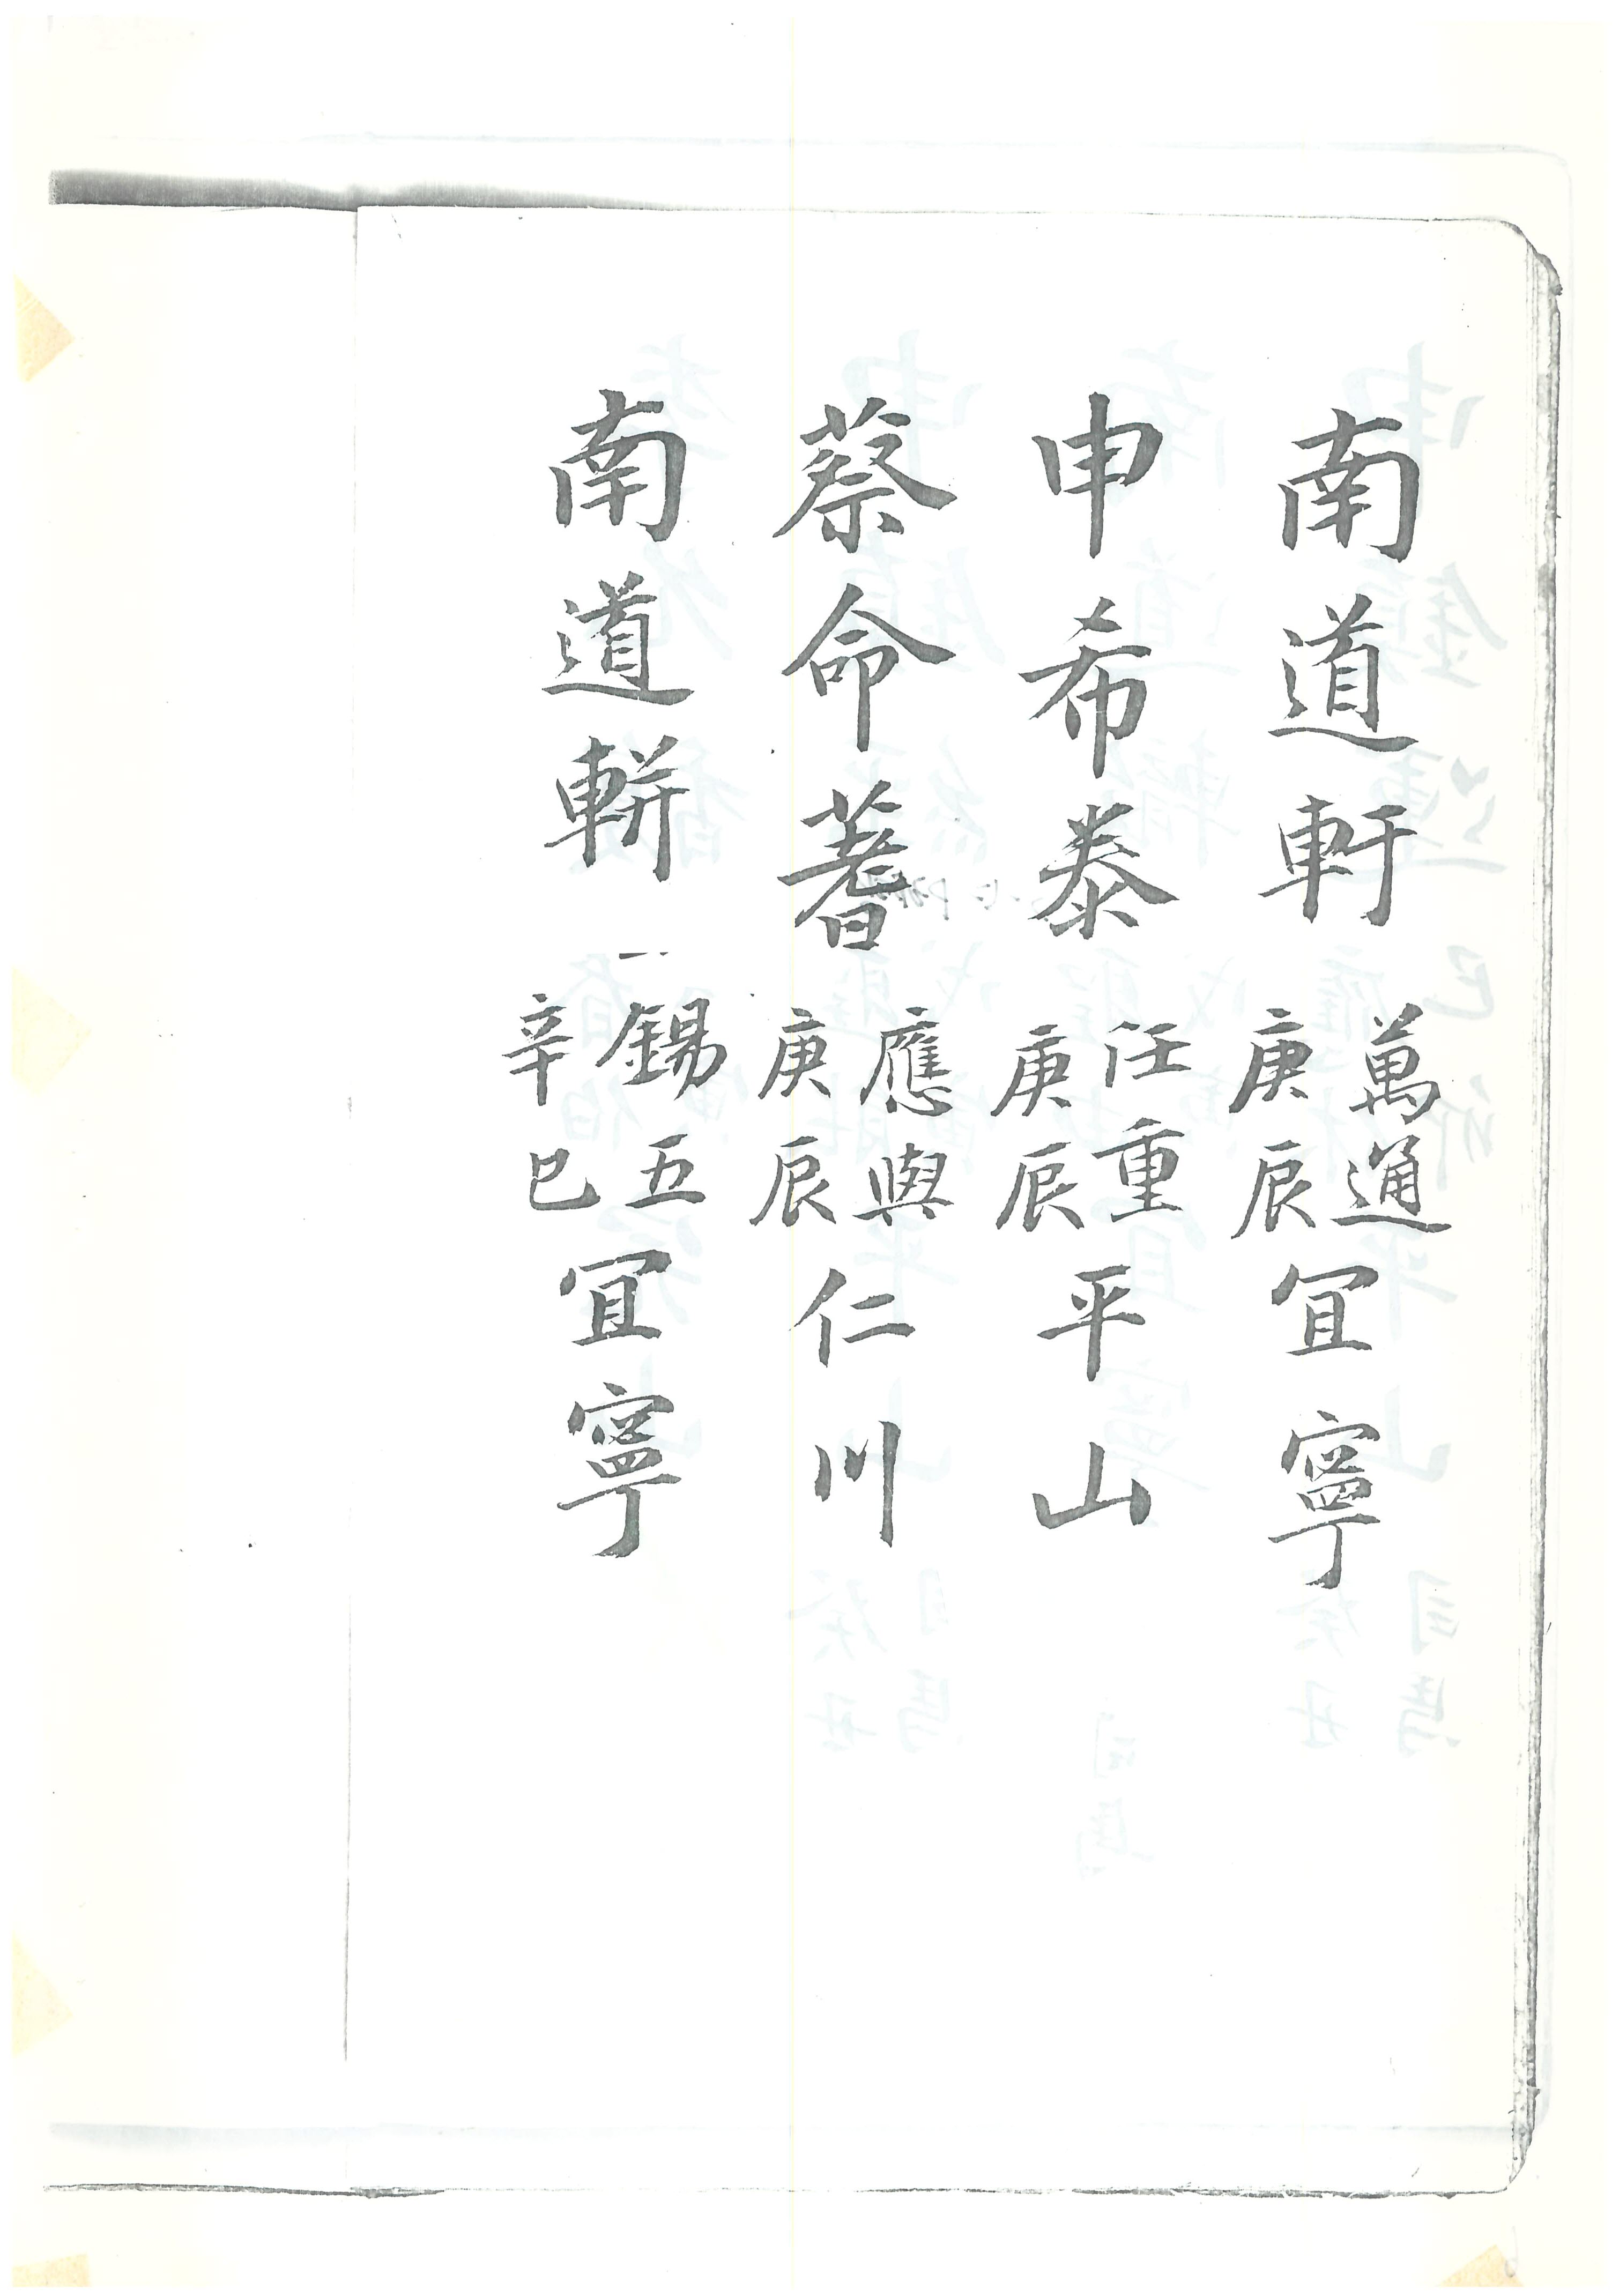 南道軒 萬通 庚辰 宜寧
申希泰 任重 庚辰 平山
蔡命蓍 應與 庚辰 仁川
南道輧 錫五 辛巳 宜寧